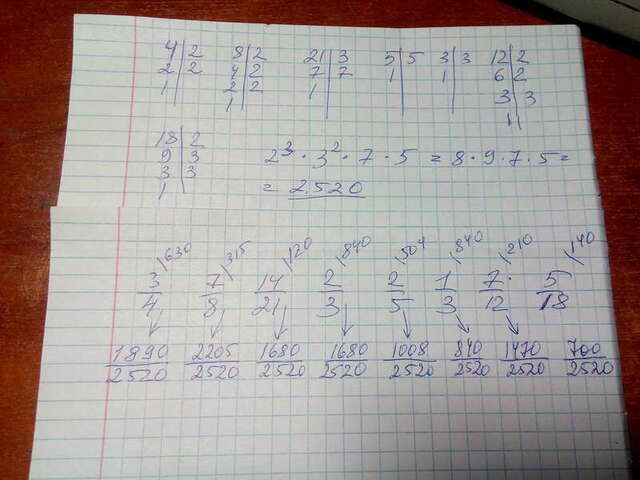 4 | 2 8 | 2 21 | 3 5 | 5 3 | 3 12 | 2
2 | 2 4 | 2 7 | 7 1 | 1 | 6 | 2
1 | 2 | 2 1 | 3 | 3
1 | 1 |
18 | 2
9 | 3 2³ · 3² · 7 · 5 = 8 · 9 · 7 · 5 =
3 | 3 = 2520
1 |
3/4 \630 7/8 \315 14/21 \120 2/3 \840 2/5 \504 1/3 \840 7/12 \210 5/18 \140
↓ ↓ ↓ ↓ ↓ ↓ ↓
1890/2520 2205/2520 1680/2520 1680/2520 1008/2520 840/2520 1470/2520 700/2520